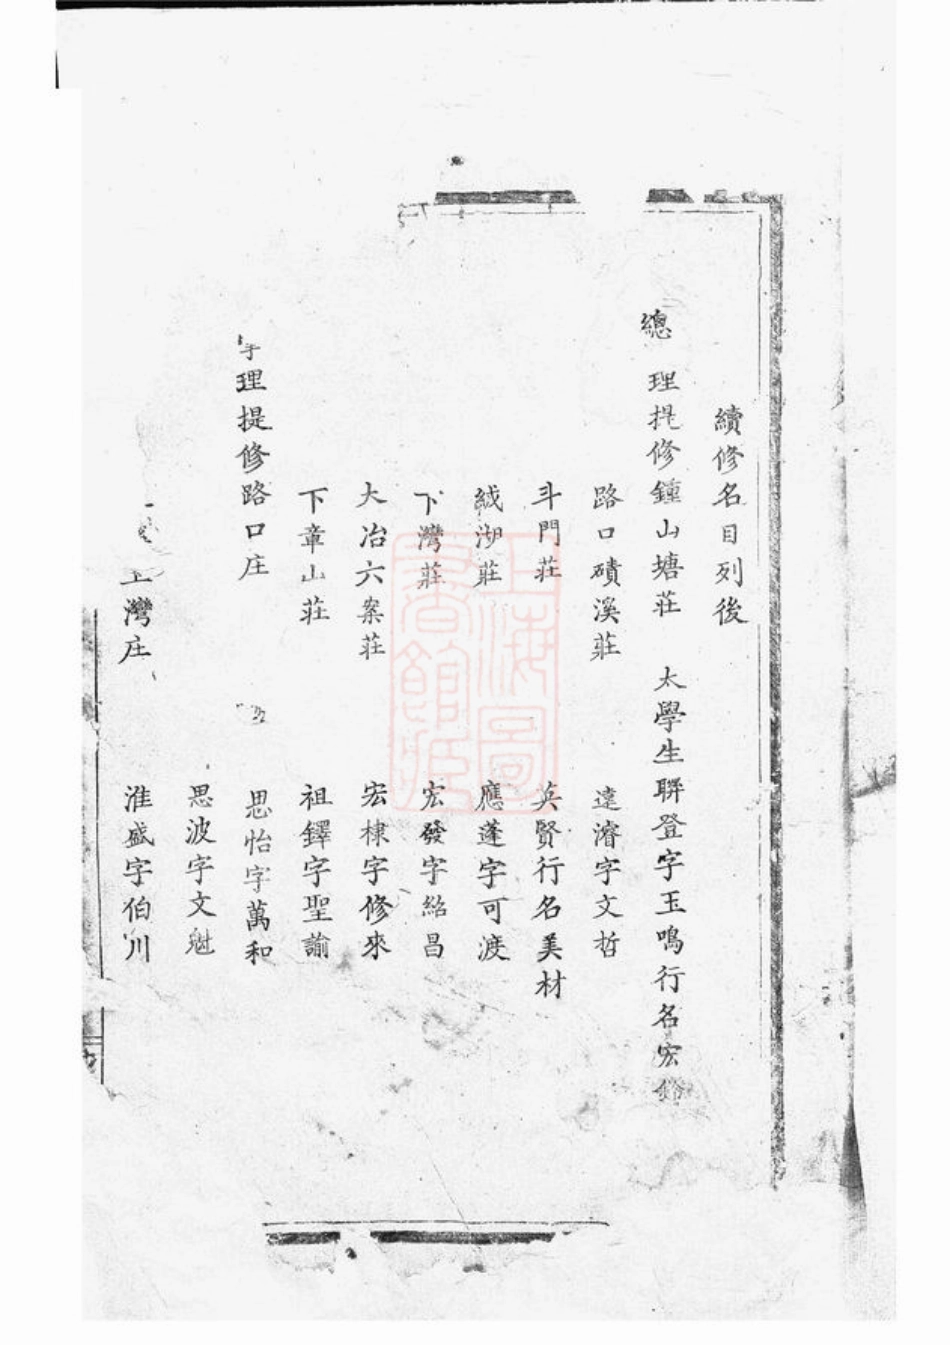 續修名目列後
總理提修鍾山塘莊 太學生聯登字玉鳴行名宏
路口磧溪莊 達濬字文哲
斗門莊 英賢行名美材
絨湖莊 應蓬字可渡
下灣莊 宏發字紹昌
大冶六案莊 宏棣字修來
下章山莊 祖鐸字聖諭
理提修路口庄 思怡字萬和
思波字文魁
上灣庄 淮盛字伯川
上海圖書館藏